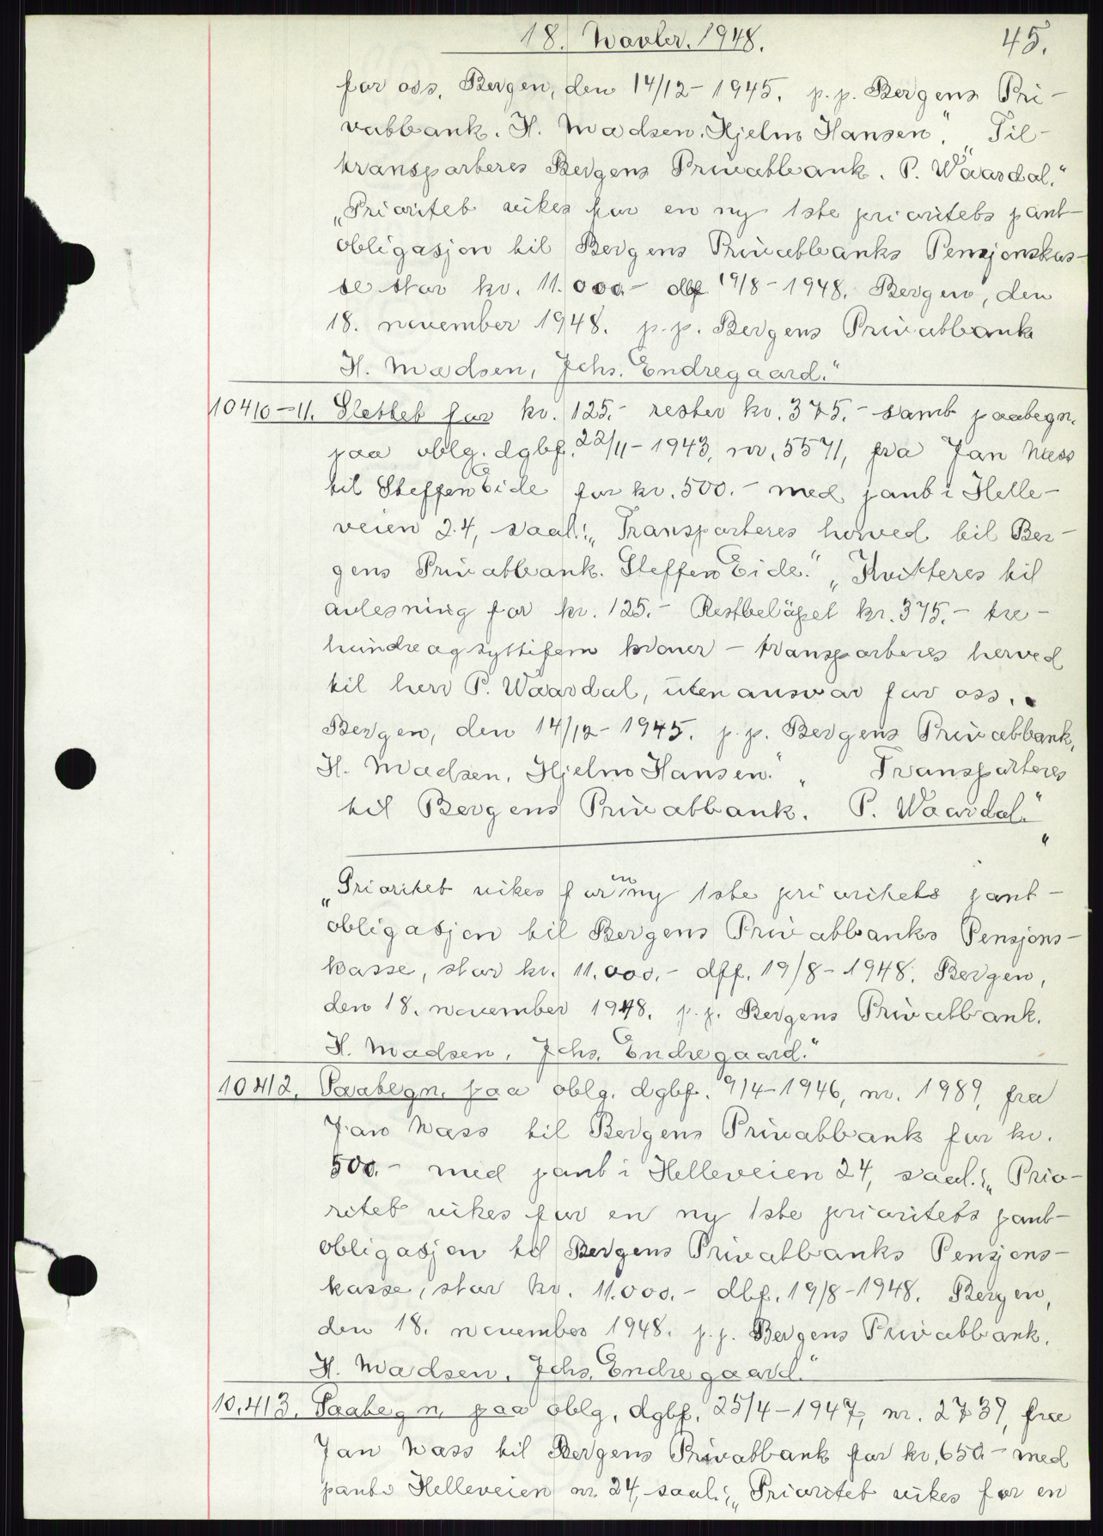 18. Novbr. 1948.
45.
for oss. Bergen, den 14/12-1945. p.p. Bergens Pri-
vatbank. H. Madsen. Hjelm Hansen". „Til-
transporteres Bergens Privatbank. P. Waardal."
„Prioritet vikes for en ny 1ste prioritets pant-
obligasjon til Bergens Privatbanks Pensjonskas-
se stor kr. 11.000.- dbf 19/8-1948. Bergen, den
18. november 1948. p.p. Bergens Privatbank
H. Madsen, Johs. Endregaard."
10410-11. Slettet for kr. 125.- rester kr. 375.- samt paabegn.
paa oblg. dgbf. 22/11-1943, nr. 5571, fra Jan Næss
til Steffen Eide for kr. 500.- med pant i Helle-
veien 24, saal.: „Transporteres herved til Ber-
gens Privatbank. Steffen Eide." „Kvitteres til
avlesning for kr. 125.- Restbeløpet kr. 375.- tre-
hundreogsyttifem kroner - transporteres herved
til herr P. Waardal, uten ansvar for oss.
Bergen, den 14/12-1945. p.p. Bergens Privatbank,
H. Madsen. Hjelm Hansen." „Transporteres
til Bergens Privatbank. P. Waardal."
„Prioritet vikes for en ny 1ste prioritets pant-
obligasjon til Bergens Privatbanks Pensjons-
kasse, stor kr. 11.000.- dff. 19/8-1948. Bergen,
den 18. november 1948. p.p. Bergens Privatbank.
H. Madsen, Johs. Endregaard."
10412. Paabegn. paa oblg. dgbf. 9/4-1946, nr. 1989, fra
Jan Næss til Bergens Privatbank for kr.
500.- med pant i Helleveien 24, saal.: „Prio-
ritet vikes for en ny 1ste prioritets pant-
obligasjon til Bergens Privatbanks Pensjons-
kasse, stor kr. 11.000.- dbf. 19/8-1948. Bergen,
den 18. november 1948. p.p. Bergens Privatbank.
H. Madsen. Johs. Endregaard."
10.413. Paabegn. paa oblg. dgbf. 25/4-1947, nr. 2739, fra
Jan Næss til Bergens Privatbank for kr. 650.- med
pant i Helleveien nr. 24, saal.: „Prioritet vikes for en